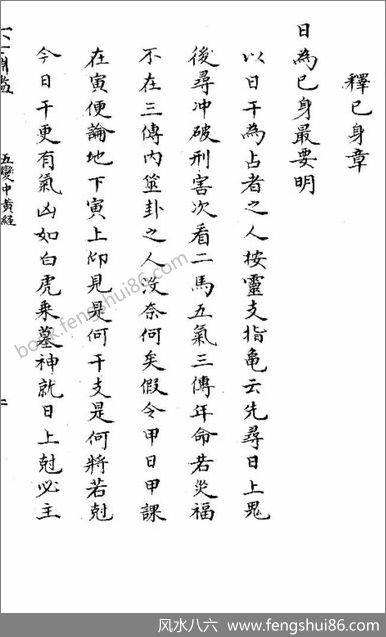 釋已身章
日為已身最要明
以日干為占者之人按靈支指龜云先尋日上鬼
後尋冲破刑害次看二馬五氣三傳年命若災福
不在三傳內筮卦之人沒奈何矣假令甲日甲課
在寅便論地下寅上仰見是何干支是何將若尅
今日干更有氣凶如白虎乘墓神就日上尅必主
五變中黃經
book.fengshui86.com
风水八六 www.fengshui86.com